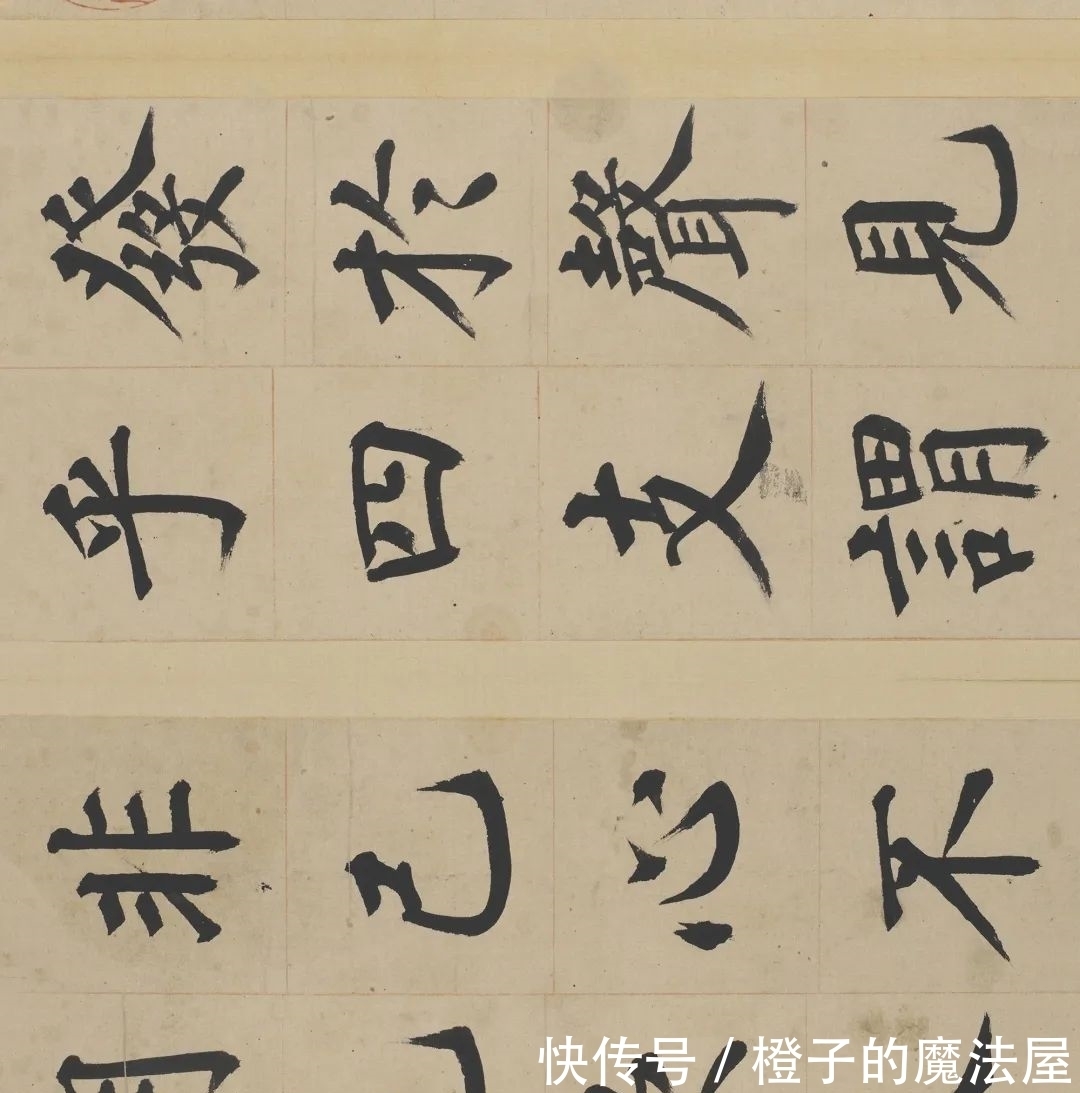 發於聲見
乎四支謂
非己心不
快传号 / 橙子的魔法屋